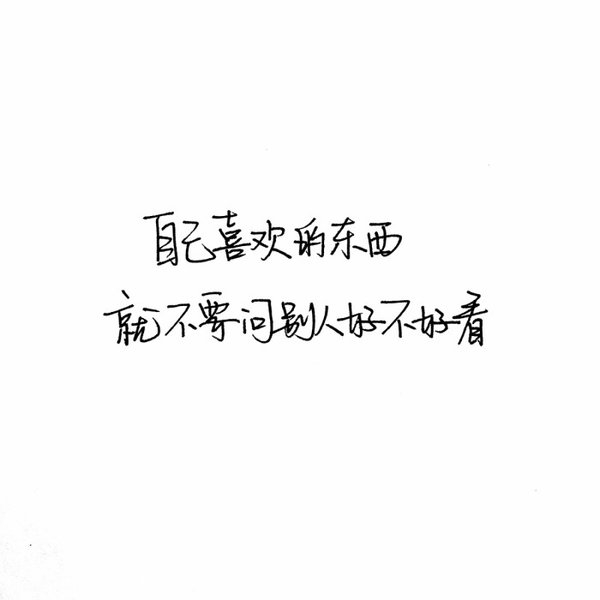 自己喜欢的东西
就不要问别人好不好看